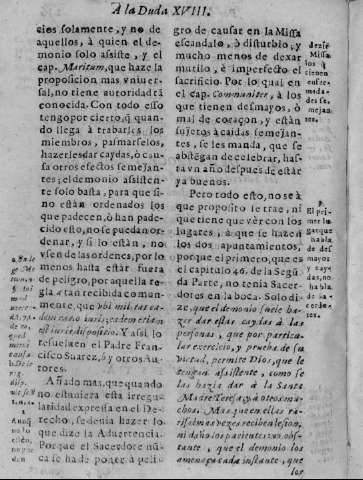 A la Duda XVIII.
cios solamente, y no de
aquellos, à quien el de-
monio solo asiste, y el
cap. Maritum, que haze la
proposicion mas vniuer-
sal, no tiene autoridad tã
conocida. Con todo esso
tengo por cierto, q̃ quan-
do llega à trabarles los
miembros, pasmarselos,
hazerles dar caydas, ò cau-
sa otros efetos semejan-
tes; el demonio asisten-
te solo basta, para que si
no están ordenados los
que padecen, ò han pade-
cido esto, no se puedan or-
denar, y si lo están, no
vsen de las ordenes, por lo
menos hasta estár fuera
de peligro, por aquella re-
gla tan recibida comun-
mente, que vbi militat ea-
dem ratio
est iuris dispositio. Y assi lo
resueluen el Padre Fran-
cisco Suarez, y otros Au-
tores.
Añado mas, que quando
no estuuiera esta irregu-
laridad expressa en el De-
recho, se deuia hazer lo
que dize la Aduertencia.
Porque el Sacerdote nũ-
ca se ha de poner à peli-
gro de causar en la Missa
escandalo, ò disturbio, y
mucho menos de dexar
mutilo, è imperfecto el
sacrificio. Por lo qual en
el cap. Communiter, à los
que tienen desmayos, ò
mal de coraçon, y están
sujetos à caidas semejan-
tes, se les manda, que se
abstegan de celebrar, has-
ta vn año despues de estár
ya buenos.
Pero todo esto, no se à
que proposito le trae, ni
que tiene que vèr con los
lugares, à que se hazen
los dos apuntamientos,
porque el primero, que es
el capitulo 46. de la Segũ-
da Parte, no tenia Sacer-
dores en la boca. Solo di-
ze, que el demonio suele ha-
zer dar estas caydas à las
personas, que por particu-
lar exercicio, y prueba de su
virtud, permite Dios, que le
tengan assistente, como se
las hazia dar à la Santa
Madre Teresa, y à otros mu-
chos. Mas que en ellas ra-
rissimas vezes reciben lesion,
ni daño los pacientes: no obs-
tante, que el demonio los
amenaza cada instante, que
los